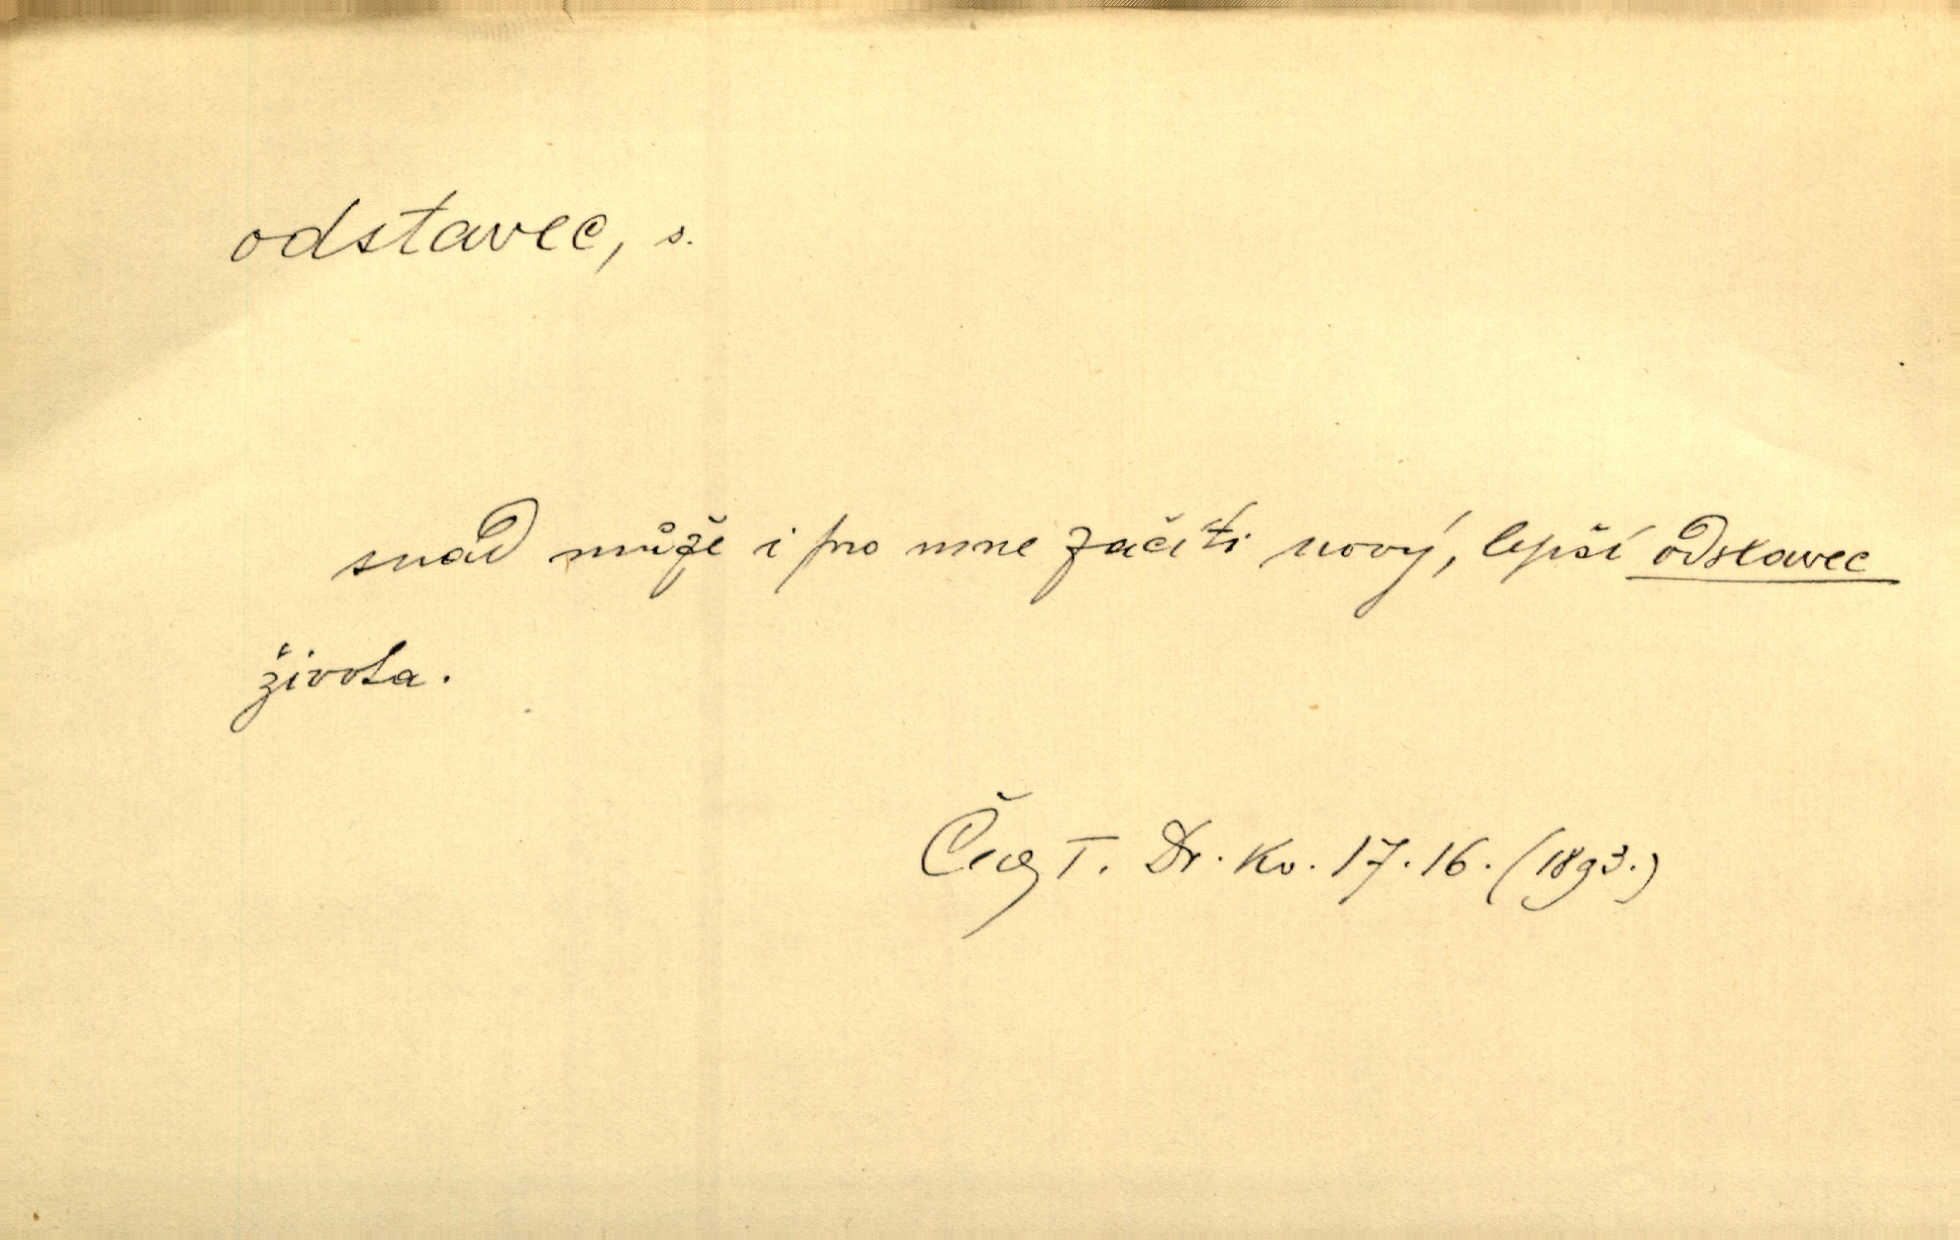 odstavec, s.
snad může i pro mne začíti nový, lepší odstavec
života.
Čech T. Dr. Kv. 17. 16. (1893.)